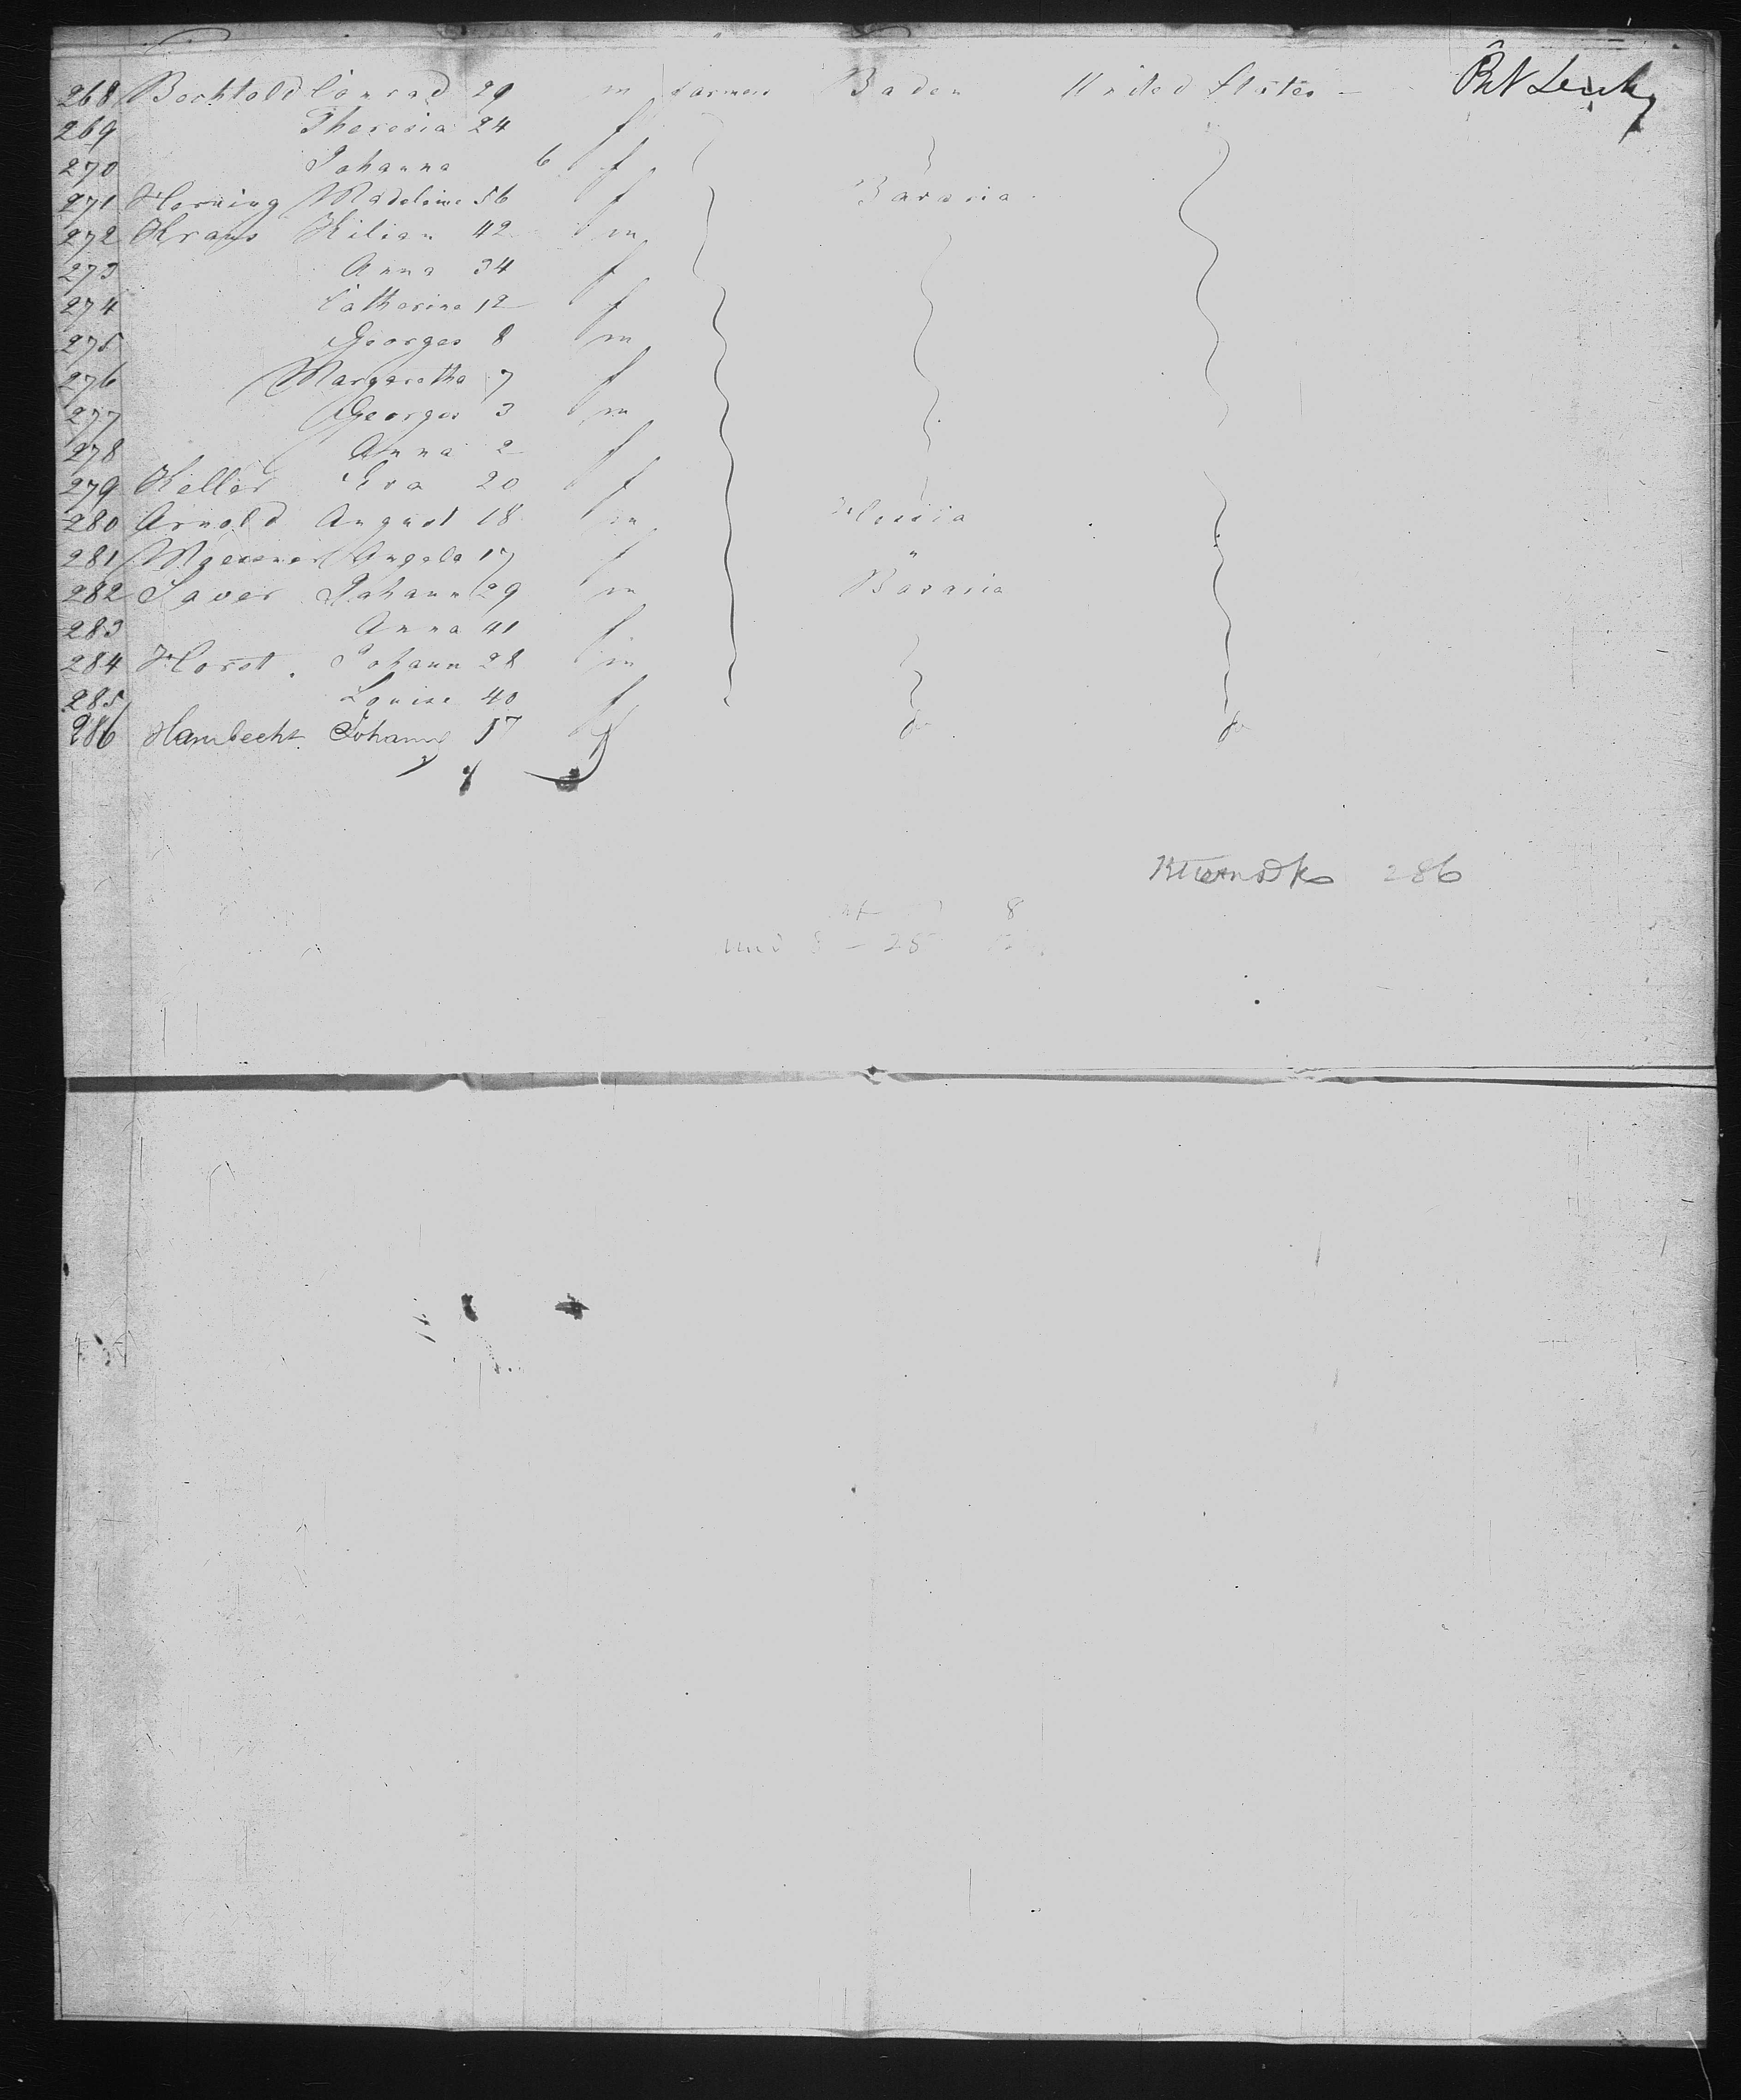 268 Bechtold Conrad 29 m farmer Baden United States
269 Theresia 24 f
270 Johanna 6 f
271 Horning Madeleine 56 f Bavaria
272 Kraus Kilian 42 m
273 Anna 34 f
274 Catherine 12 f
275 Georges 8 m
276 Margaretha 7 f
277 Georges 3 m
278 Anna 2 f
279 Keller Eva 20 f
280 Arnold August 18 m
281 Angela 17 f "
282 Saver Johann 29 m Bavaria
283 Anna 41 f
284 Horst Johann 28 m
285 Louise 40 f
286 Hambecht Johann 57 do do
286
8